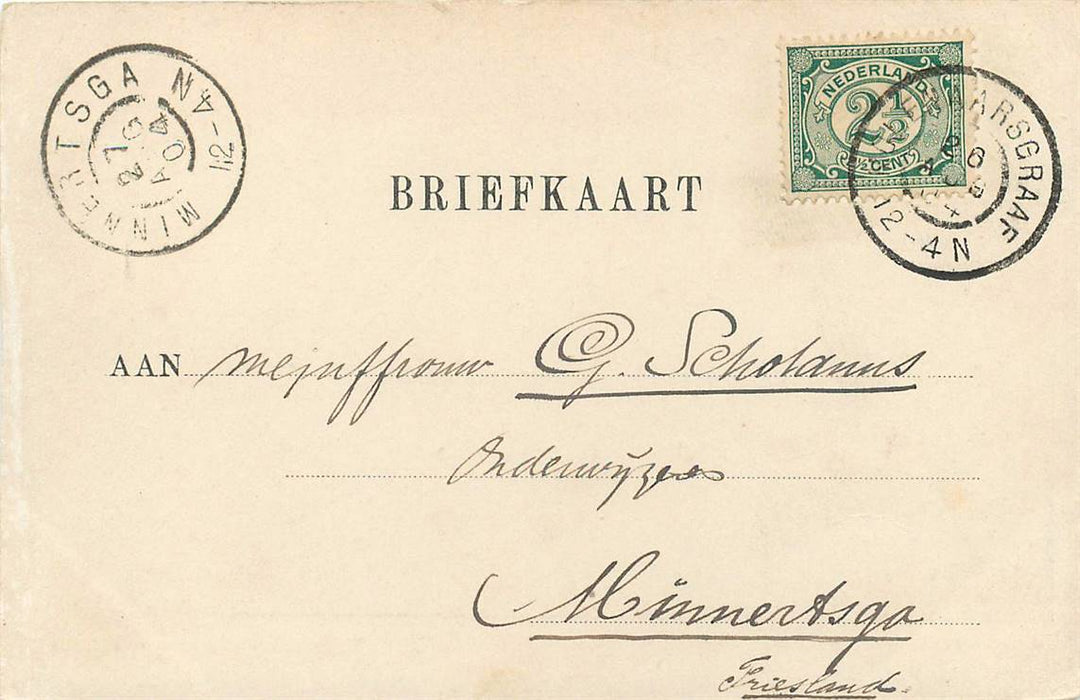 MINNERTSGA
27 AUG 04
12-4N
NEDERLAND
2½
2½ CENT
AARSGRAAF
26
4
12-4N
BRIEFKAART
AAN mejuffrouw G. Scholanus
Onderwijzeres
Minnertsga
Friesland